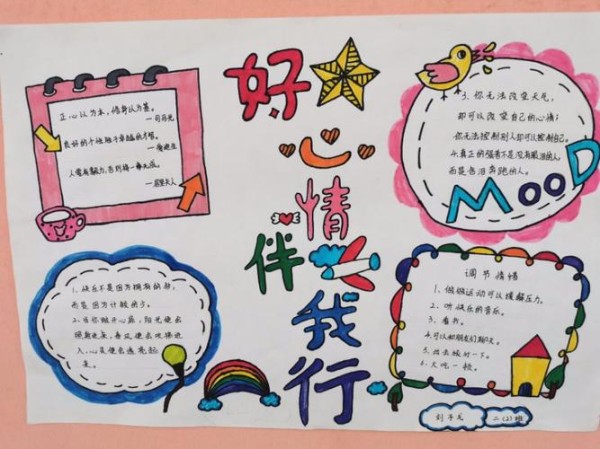 好
心
情
伴
我
行
正心以为本，修身以为基。
—司马光
良好的个性胜于卓越的才智。
—爱迪生
人看有魅力，否则拥一无成。
—居里夫人
3.你无法改变天气，
却可以改变自己的心情；
你无法控制别人却可以控制自己。
4.真正的强者不是没有眼泪的人，
而是含泪奔跑的人。
MOOD
1.快乐不是因为拥有的多，
而是因为计较的少。
2.当你敞开心扉，阳光便会
照射进来，
人，心灵便会透亮起
来。
调节情绪
1.做做运动可以缓解压力。
2.听快乐的音乐。
3.看书。
4.可以和朋友们聊天。
5.出去旅行一下。
6.大吃一顿。
二(2)班